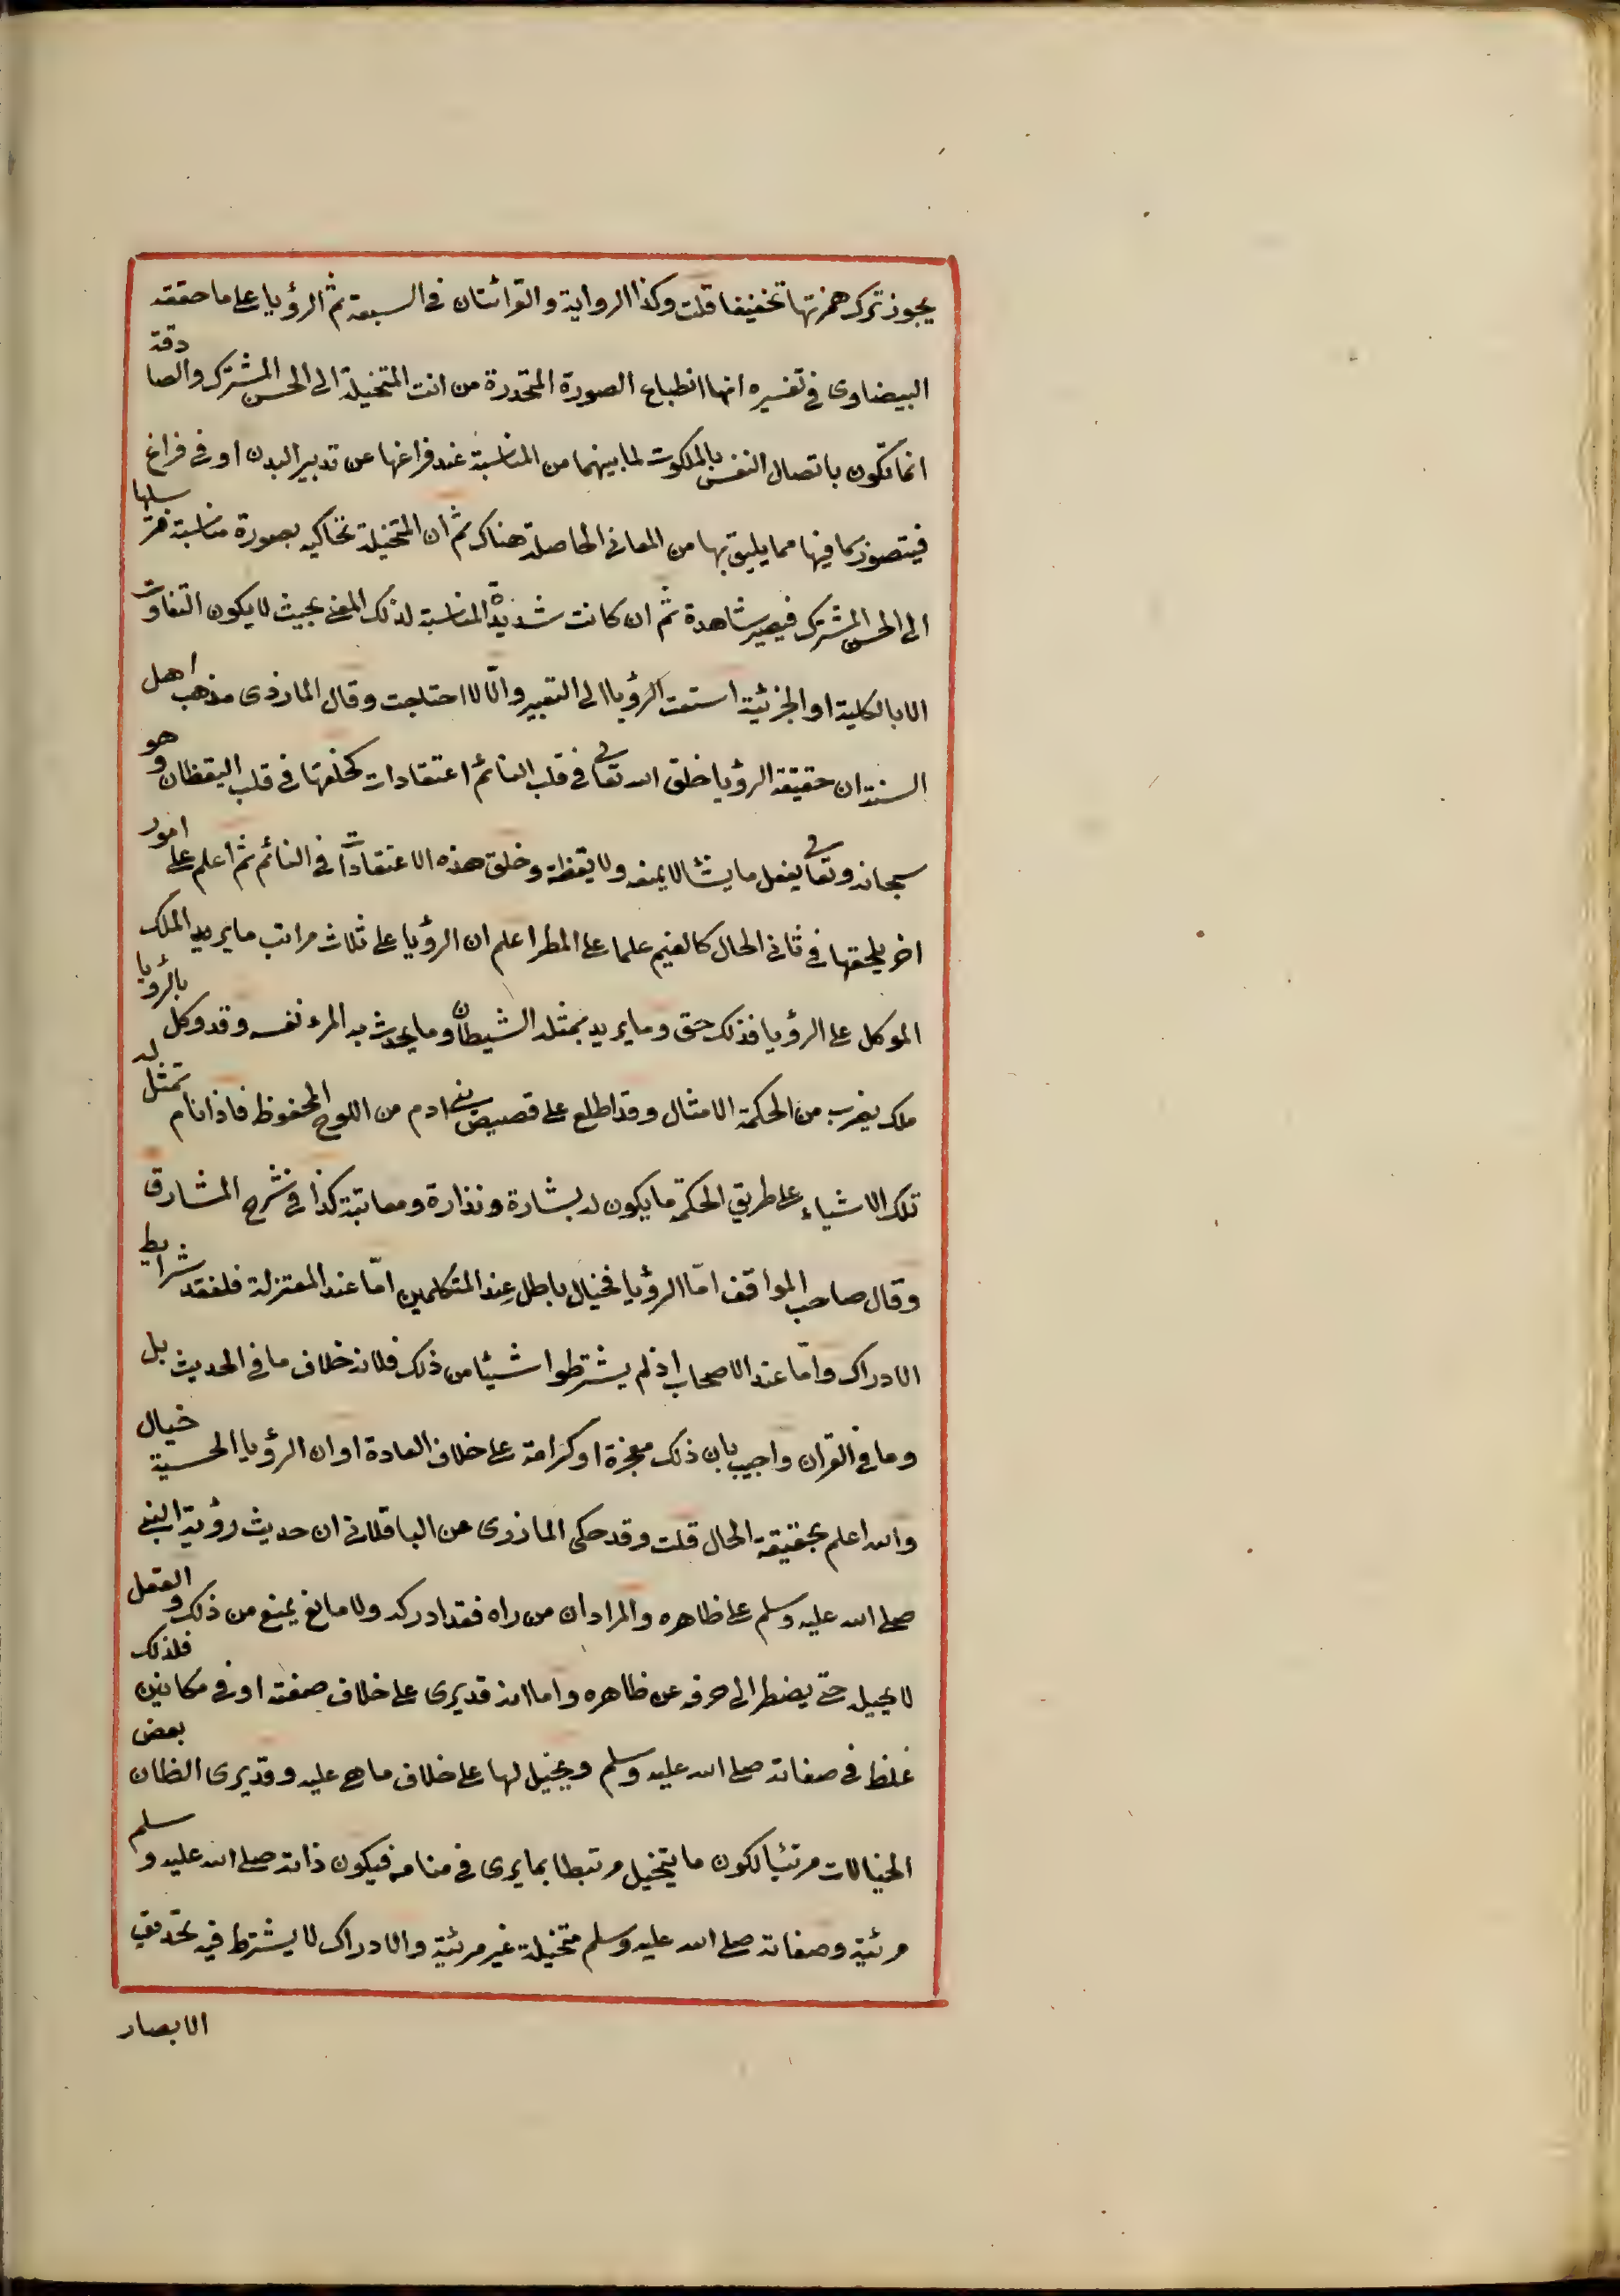 يجوز ترك همزتها تخفيفا قلت وكذا الرواية والقرائتان في السبعة ثم الرؤيا على ما حققه
البيضاوى في تفسيره انها انطباع الصورة المتحدرة من انت المتخيلة الى الحس المشترك والصادقة
انما تكون باتصال النفس بالملكوت لما بينهما من المناسبة عند فراغها عن تدبير البدن او في فراغ
فيتصور كما فيها مما يليق بها من المعانى الحاصلة هناك ثم ان المتخيلة تحاكيه بصورة مناسبة فترسلها
الى الحس المشترك فيصير شاهدة ثم ان كانت شديدة المناسبة لذلك المعنى بحيث لا يكون التفاوت
الا بالكلية او الجزئية استغنت الرؤيا الى التعبير والا لا احتاجت وقال المازذى مذهب اهل
السنة ان حقيقة الرؤيا خلق الله تعالى في قلب النائم اعتقادات كخلقها في قلب اليقظان وهو
سبحانه وتعالى يفعل ما يشا لا يمنعه ولا يقظة وخلق هذه الاعتقادات في النائم ثم اعلم على امور
اخر يلحقها في ثانى الحال كالغيم علما على المطر اعلم ان الرؤيا على ثلاث مراتب ما يريه الملك
الموكل على الرؤيا فذلك حق وما يريد بمثله الشيطان وما يحدث به المرء نفسه وقد وكل بالرؤيا
ملك يضرب من الحكمة الامثال وقد اطلع على قصيص بنى ادم من اللوح المحفوظ فاذا نام تمثل له
تلك الاشياء على طريق الحكمة ما يكون له بشارة ونذارة ومعاتبة كذا في شرح المشارق
وقال صاحب المواقف امّا الرؤيا فخيال باطل عند المتكلمين امّا عند المعتزلة فلفقد شرايط
الادراك وامّا عند الاصحاب اذ لم يشترطوا شيئا من ذلك فلانه خلاف ما في الحديث بل
وما في القران واجيب بان ذلك معجزة او كرامة على خلاف العادة او ان الرؤيا الحسية خيال
والله اعلم بحقيقة الحال قلت وقد حكى المازرى عن الباقلانى ان حديث رؤية النبى
صلى الله عليه وسلم على ظاهره والمراد ان من راه فقد ادركه ولا مانع يمنع من ذلك والعقل
لا يحيله حتى يضطر الى صرفه عن ظاهره واما انه قد يرى على خلاف صفته او في مكانين فلذلك
غلط في صفاته صلى الله عليه وسلم ويخيل لها على خلاف ما هى عليه وقد يرى الظان بعض
الخيالات مرئيا لكون ما يتخيل مرتبطا بما يرى في منامه فيكون ذاته صلى الله عليه وسلم
مرئية وصفاته صلى الله عليه وسلم متخيلة غير مرئية والادراك لا يشترط فيه تحديق
الابصار